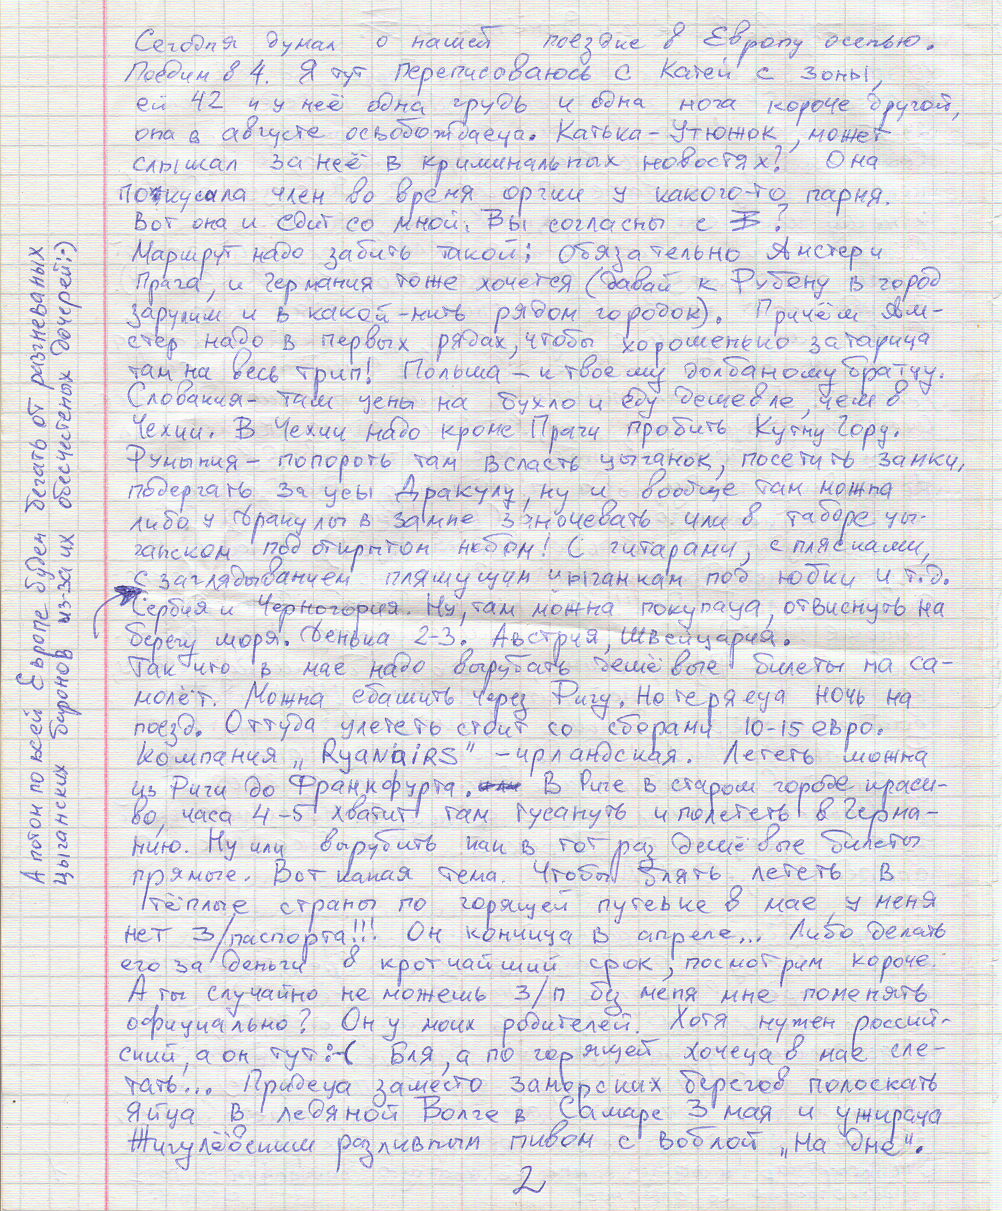 Сегодня думал о нашей поездке в Европу осенью.
Поедим в 4. Я тут переписоваюсь с Катей с зоны,
ей 42 и у неё одна грудь и одна нога короче другой,
она в августе освобождаеца. Катька-Утюжок, может
слышал за неё в криминальных новостях? Она
покусала член во время оргии у какого-то парня.
Вот она и едит со мной. Вы согласны с З?
Маршрут надо забить такой: обязательно Амстер и
Прага, и Германия тоже хочется (давай к Рубену в город
зарулим и в какой-нить рядом городок). Причём Ам-
стер надо в первых рядах, чтобы хорошенько затарица
там на весь трип! Польша - к твоему долбаному братцу.
Словакия - там цены на бухло и еду дешевле, чем в
Чехии. В Чехии надо кроме Праги пробить Кутну Гору.
Румыния - попороть там всласть цыганок, посетить замки,
подергать за усы Дракулу, ну и вообще там можна
либо у Дракулы в замке заночевать или в таборе цы-
ганском под открытом небом! С гитарами, с плясками,
с заглядыванием пляшущим цыганкам под юбки и т.д.
Сербия и Черногория. Ну, там можна покупаца, отвиснуть на
берегу моря. Денька 2-3. Австрия, Швейцария.
Так что в мае надо вырубать дешёвые билеты на са-
молёт. Можна ебашить через Ригу. Но теряеца ночь на
поезд. Оттуда улететь стоит со сборами 10-15 евро.
Компания „RyanaiRS" - ирландская. Лететь можна
из Риги до Франкфурта. В Риге в старом городе краси-
во, часа 4-5 хватит там тусануть и полететь в Герма-
нию. Ну или вырубить как в тот раз дешёвые билеты
прямые. Вот какая тема. Чтобы блять лететь в
тёплые страны по горящей путёвке в мае, у меня
нет З/паспорта!!! Он кончица в апреле... Либо делать
его за деньги в кротчайший срок, посмотрим короче.
А ты случайно не можешь З/п без меня мне поменять
официально? Он у моих родителей. Хотя нужен россий-
ский, а он тут :-( Бля, а по горящей хочеца в мае сле-
тать... Придеца заместо заморских берегов полоскать
яйца в ледяной Волге в Самаре 3 мая и ужираца
Жигулёвским разливным пивом с воблой „На дне".
2
А потом по всей Европе будем бегать от разгневаных
цыганских баронов из-за их обесчестеных дочерей :-)